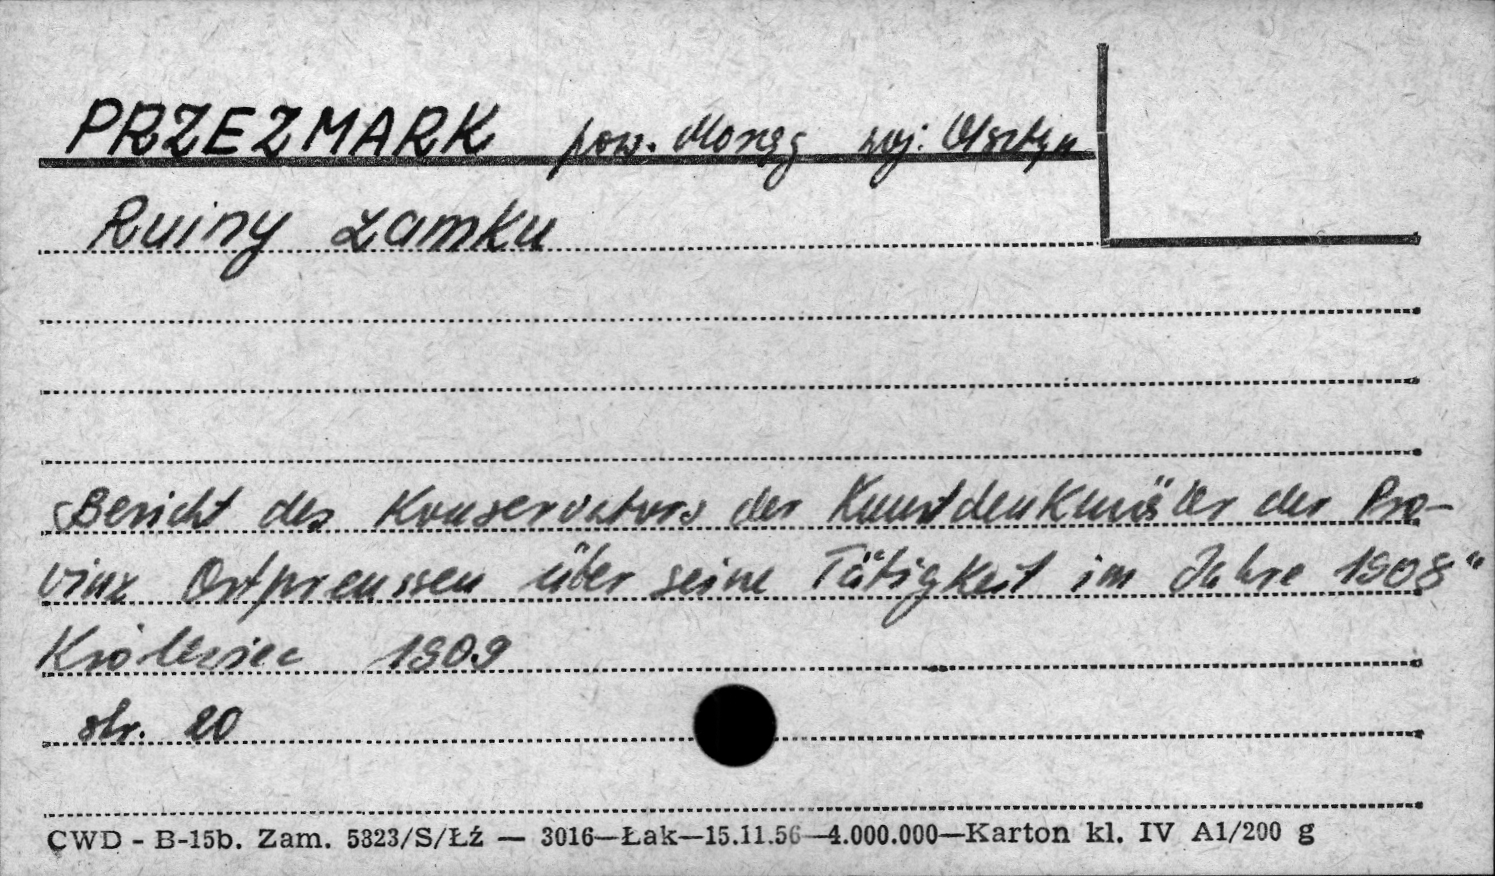 PRZEZMARK pow. Morąg woj. Olsztyn
Ruiny zamku
„Bericht des Konservators der Kunstdenkmäler der Pro-
vinz Ostpreussen über seine Tätigkeit im Jahre 1908"
Królewiec 1909
str. 20
CWD - B-15b. Zam. 5323/S/Łź — 3016—Łak—15.11.56—4.000.000—Karton kl. IV A1/200 g